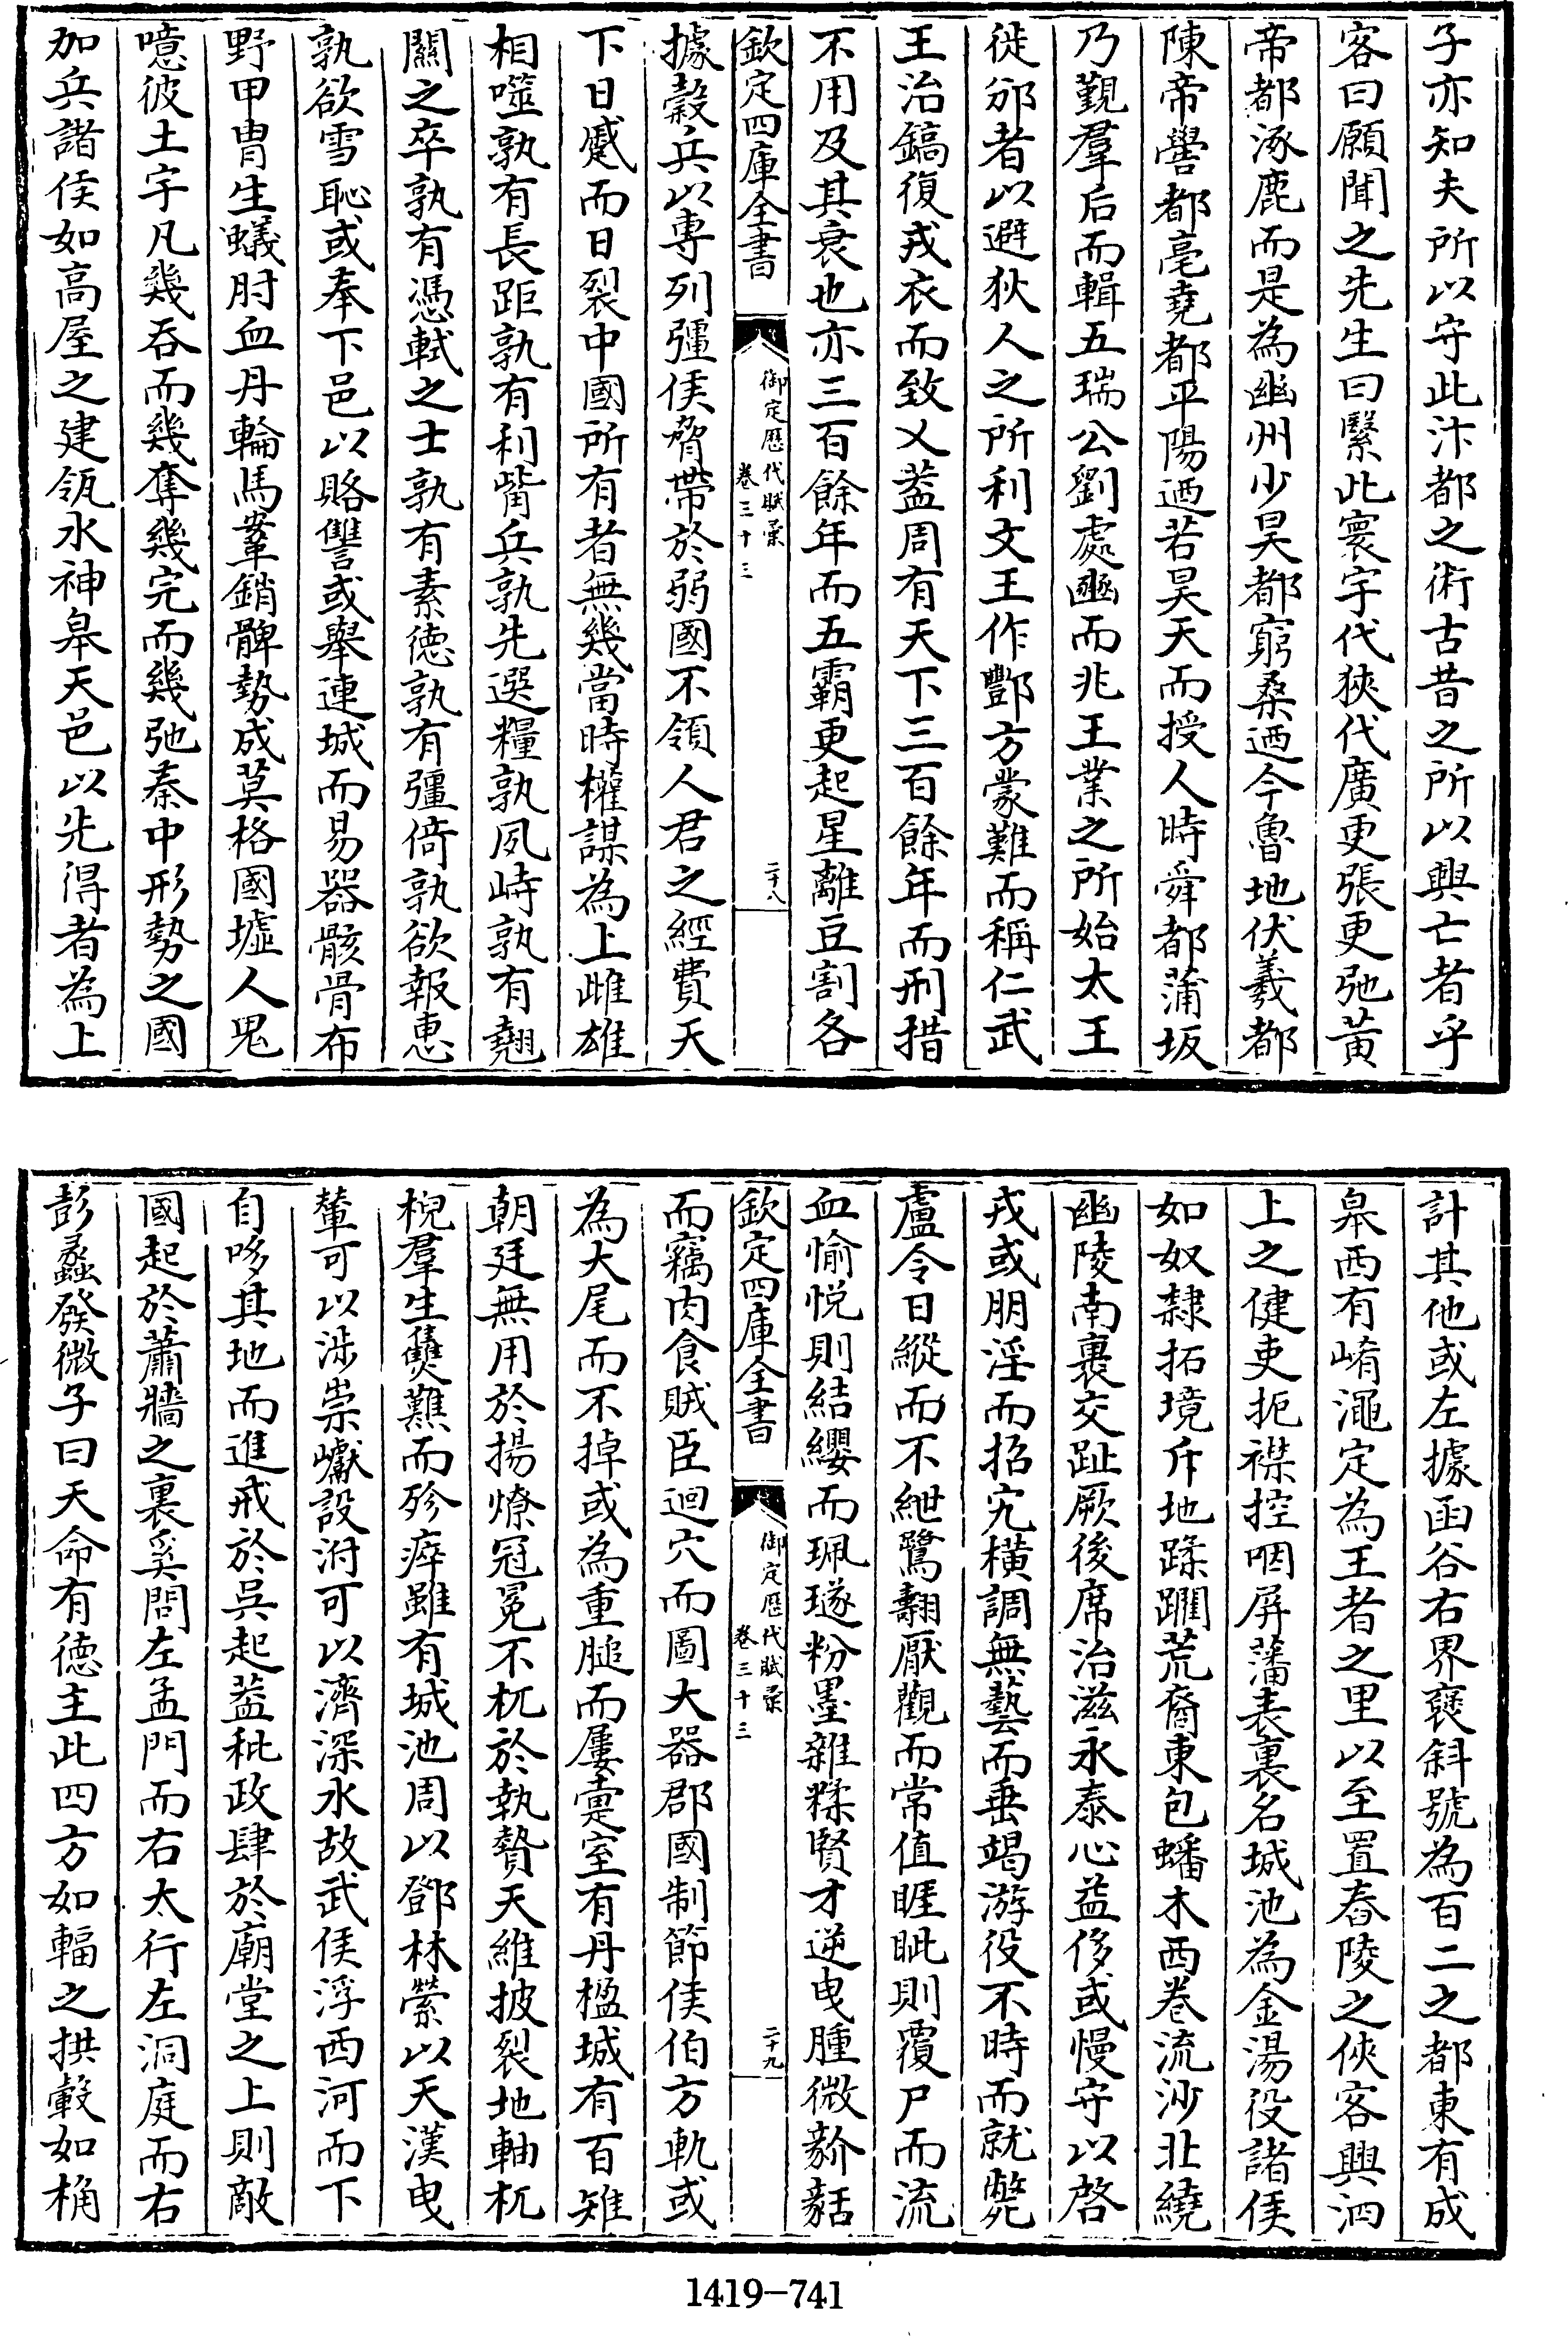 子亦知夫所以守此汴都之術古昔之所以興亡者乎
客曰願聞之先生曰繄此寰宇代狹代廣更張更弛黃
帝都涿鹿而是為幽州少昊都窮桑迺今魯地伏羲都
陳帝嚳都亳堯都平陽迺若昊天而授人時舜都蒲坂
乃觀羣后而輯五瑞公劉處豳而兆王業之所始太王
徙邠者以避狄人之所利文王作酆方蒙難而稱仁武
王治鎬復戎衣而致乂葢周有天下三百餘年而刑措
不用及其衰也亦三百餘年而五霸更起星離豆割各
欽定四庫全書
御定歷代賦彙
卷三十三
二十八
據穀兵以專列彊侯脅帶於弱國不領人君之經費天
下日蹙而日裂中國所有者無幾當時權謀為上雌雄
相噬孰有長距孰有利觜兵孰先選糧孰夙峙孰有翹
關之卒孰有憑軾之士孰有素徳孰有彊倚孰欲報惠
孰欲雪恥或奉下邑以賂讐或舉連城而易器骸骨布
野甲胄生蟻肘血丹輪馬鞌銷髀勢成莫格國墟人鬼
噫彼土宇凡幾吞而幾奪幾完而幾弛秦中形勢之國
加兵諸侯如高屋之建瓴水神皋天邑以先得者為上
計其他或左據函谷右界褒斜號為百二之都東有成
皋西有崤澠定為王者之里以至置春陵之俠客興泗
上之健吏扼襟控咽屏藩表裏名城池為金湯役諸侯
如奴隸拓境斥地蹂躙荒裔東包蟠木西卷流沙北繞
幽陵南裹交趾厥後席治滋永泰心益侈或慢守以啓
戎或朋淫而招宄横調無藝而垂竭游役不時而就斃
盧令日縱而不紲鷺翿厭觀而常值睚眦則覆尸而流
血愉悅則結纓而珮璲粉墨雜糅賢才逆曳腫微齘䶢
欽定四庫全書
御定歷代賦彙
卷三十三
二十九
而竊肉食賊臣迴穴而圖大器郡國制節侯伯方軌或
為大尾而不掉或為重膇而屢疐室有丹楹城有百雉
朝廷無用於揚燎冠冕不杌於執贄天維披裂地軸杌
棿羣生㸑難而殄瘁雖有城池周以鄧林縈以天漢曳
輦可以涉崇巘設泭可以濟深水故武侯浮西河而下
自哆其地而進戒於吳起葢秕政肆於廟堂之上則敵
國起於蕭牆之裏奚問左孟門而右太行左洞庭而右
彭蠡發微子曰天命有徳主此四方如輻之拱轂如桷
1419-741